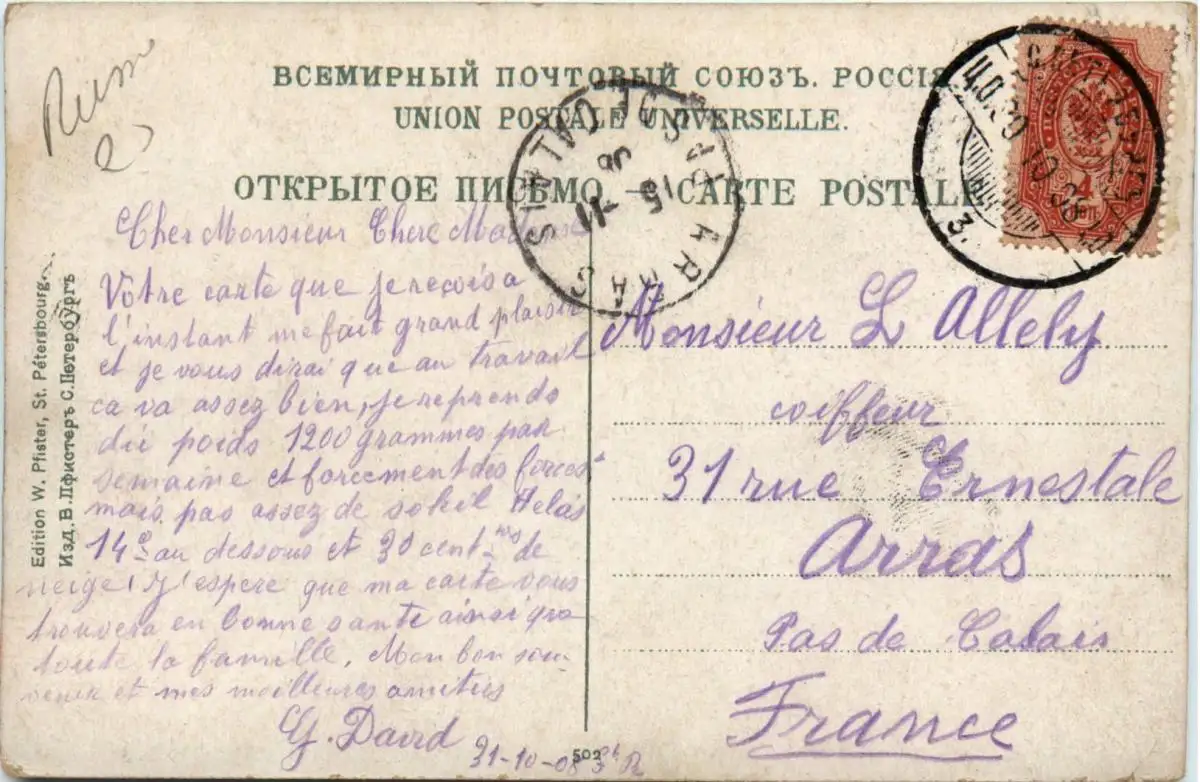 Rum
ВСЕМИРНЫЙ ПОЧТОВЫЙ СОЮЗЪ. РОССІЯ
UNION POSTALE UNIVERSELLE.
ОТКРЫТОЕ ПИСЬМО — CARTE POSTALE
ARRAS PAS DE CALAIS
15 -11
08
4
Edition W. Pfister, St. Pétersbourg.
Изд. В. Пфистеръ С. Петербургъ
Cher Monsieur Chere Madame
Votre carte que je reçois a
l'instant me fait grand plaisir
et je vous dirai que au travail
ca va assez bien, je reprends
du poids 1200 grammes par
semaine et forcement des forces
mais pas assez de soleil Helas
14° au dessous et 30 cent-mes de
neige! J'espere que ma carte vous
trouvera en bonne sante ainsi que
toute la famille. Mon bon sou-
venir et mes meilleures amitiés
G. David
31-10-08
502
Monsieur L Allely
coiffeur
31 rue Ernestale
Arras
Pas de Calais
France